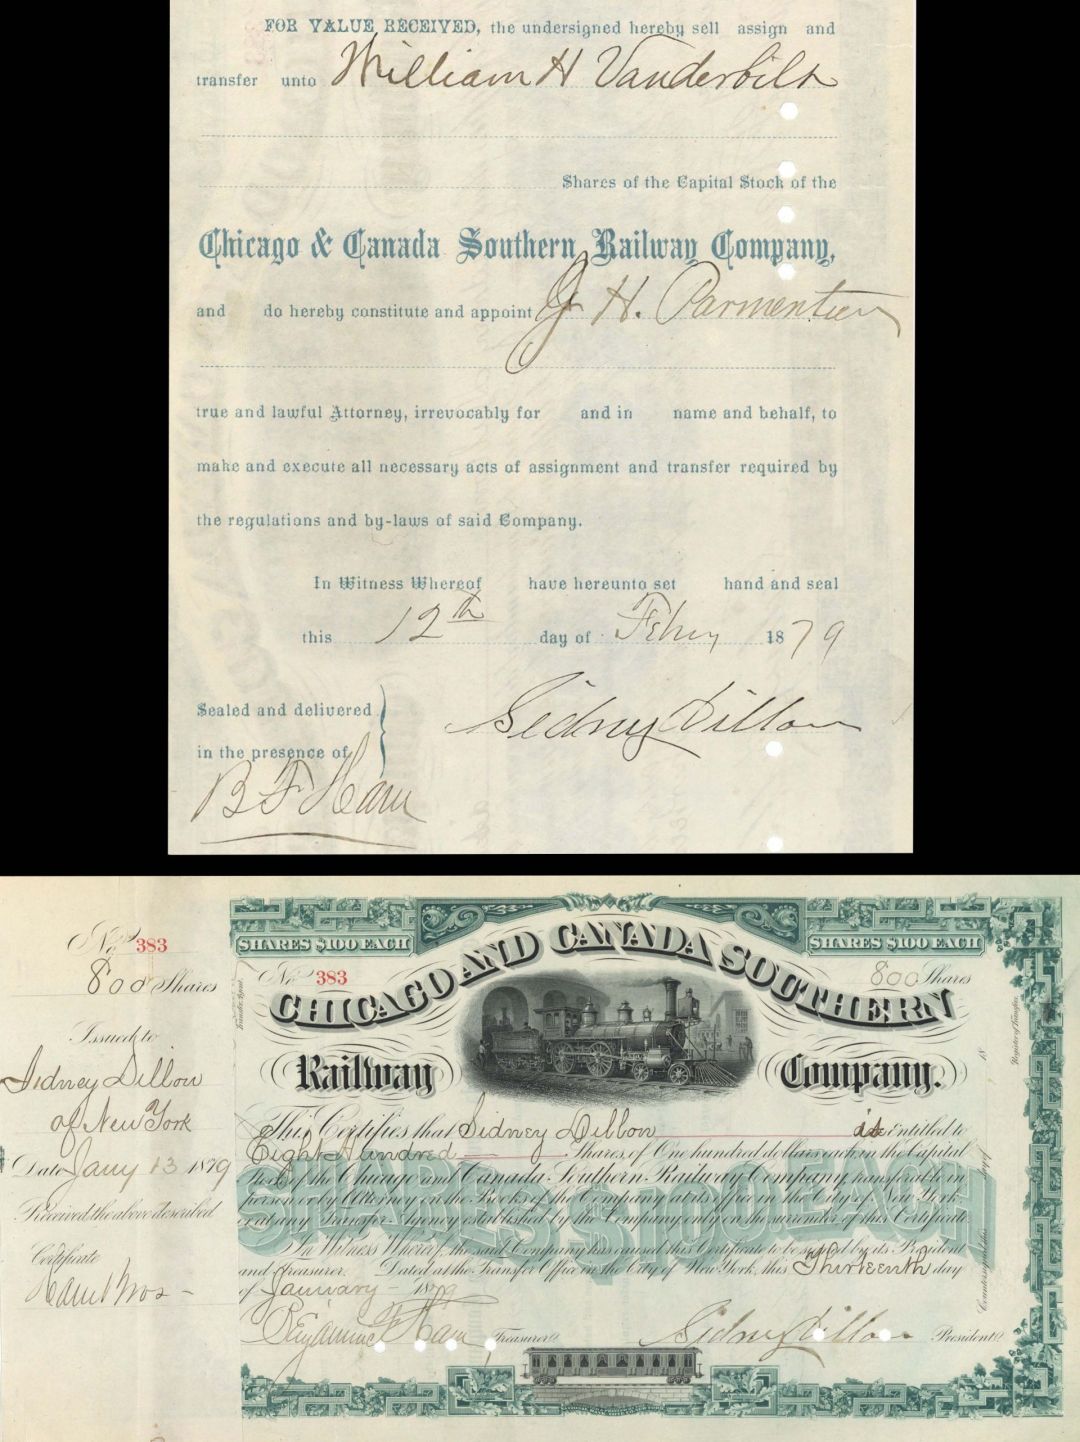 FOR VALUE RECEIVED, the undersigned hereby sell assign and
transfer unto William H Vanderbilt
Shares of the Capital Stock of the
Chicago & Canada Southern Railway Company,
and do hereby constitute and appoint J H. Parmentier
true and lawful Attorney, irrevocably for and in name and behalf, to
make and execute all necessary acts of assignment and transfer required by
the regulations and by-laws of said Company.
In Witness Whereof have hereunto set hand and seal
this 12th day of Feby 1879
Sealed and delivered
in the presence of
Sidney Dillon
B F Ham
No. 383
800 Shares
Issued to
Sidney Dillon
of New York
Date Jany 13 1879
Received the above described
Certificate
Ham Bros
SHARES $100 EACH
SHARES $100 EACH
No. 383
800 Shares
CHICAGO AND CANADA SOUTHERN
Railway Company.
This Certifies that Sidney Dillon is entitled to
Eight Hundred Shares, of One hundred dollars each in the Capital
Stock of the Chicago and Canada Southern Railway Company, transferable in
person or by Attorney on the Books of the Company at its office in the City of New York
or at any Transfer Agency established by the Company, only on the surrender of this Certificate.
In Witness Whereof, the said Company has caused this Certificate to be signed by its President
and Treasurer. Dated at the Transfer Office in the City of New York, this Thirteenth day
of January 1879
Benjamin F Ham Treasurer.
Sidney Dillon President.
SHARES $100 EACH
Transfer Agent.
Countersigned this day of 18
Register of Transfers.